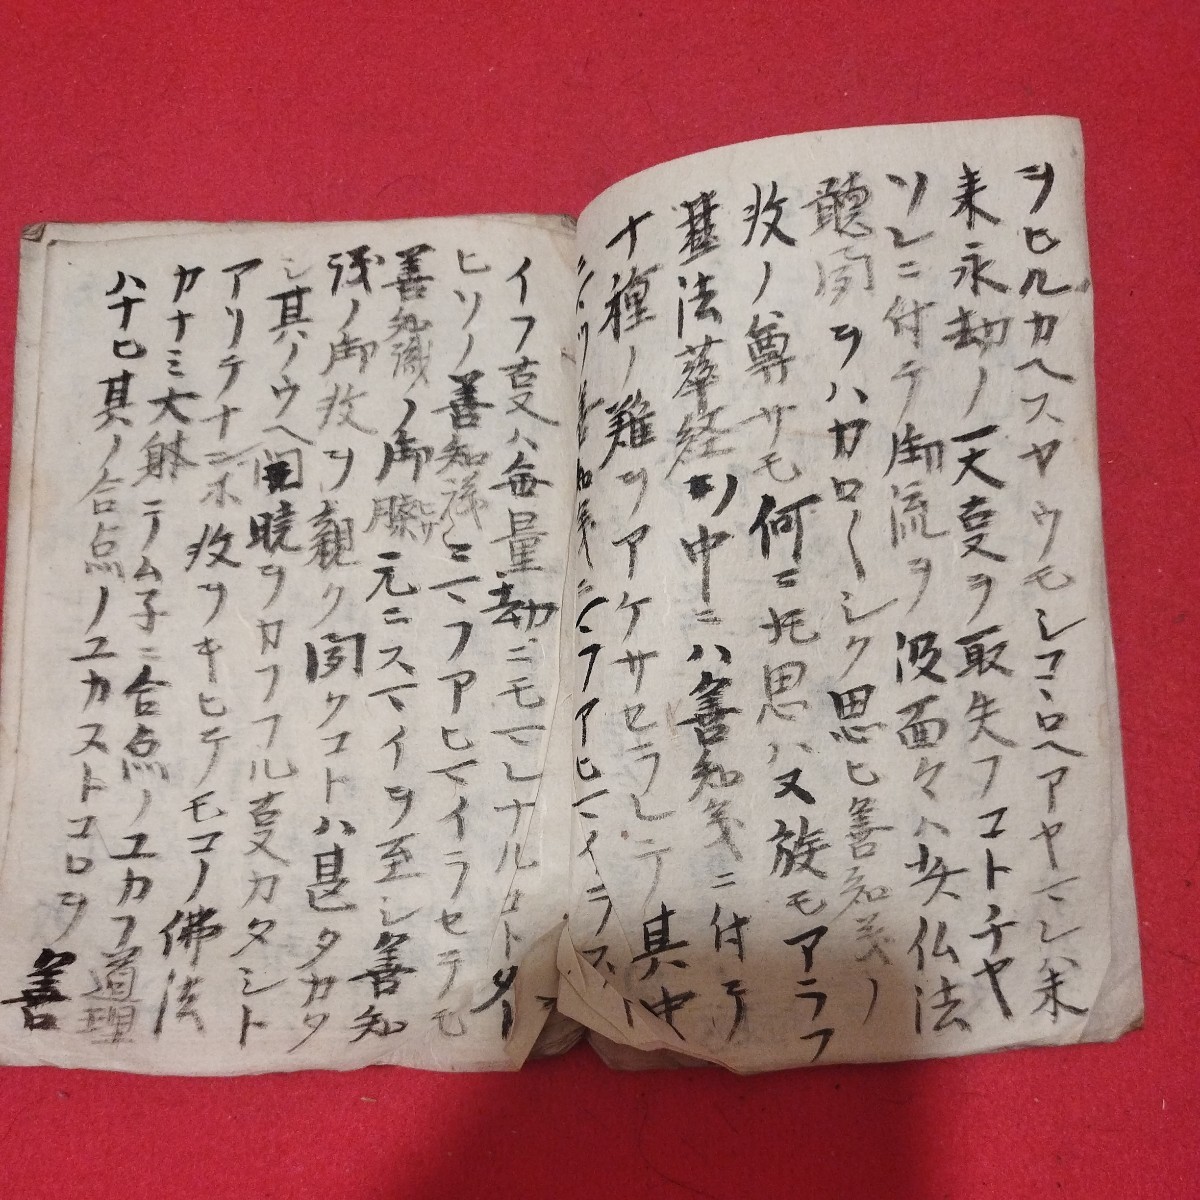 ヲヒルカヘスヤウモシコヽロヘアヤマシハ未
来永劫ノ一大事ヲ取失フコトチヤ
ソレニ付テ御流ヲ汲面々ハ仏法
聴聞ヲハカロ〱シク思ヒ善知識ノ
教ノ尊サモ何ニ托思ハヌ族モアラフ
華経ノ中ニハ善知識ニ付テ
ナ種ノ難ヲアケサセラレテ其中
善知識ニフアヒマイラス
イフ事ハ無量劫ニモマレナルコトタ
ヒソノ善知識ニマフアヒマイラセテモ
善知識ノ御膝元ニスマイヲ至シ善知
識ノ御教ヲ親ク聞クコトハ甚タカタ
シ其ノウヘ開暁ヲカフフル事カタシト
アリテナニホ教ヲキヒテモコノ佛法
カナミ大躰テム子ニ合点ノユカフ道理
ハナヒ其ノ合点ノユカストコロヲ善